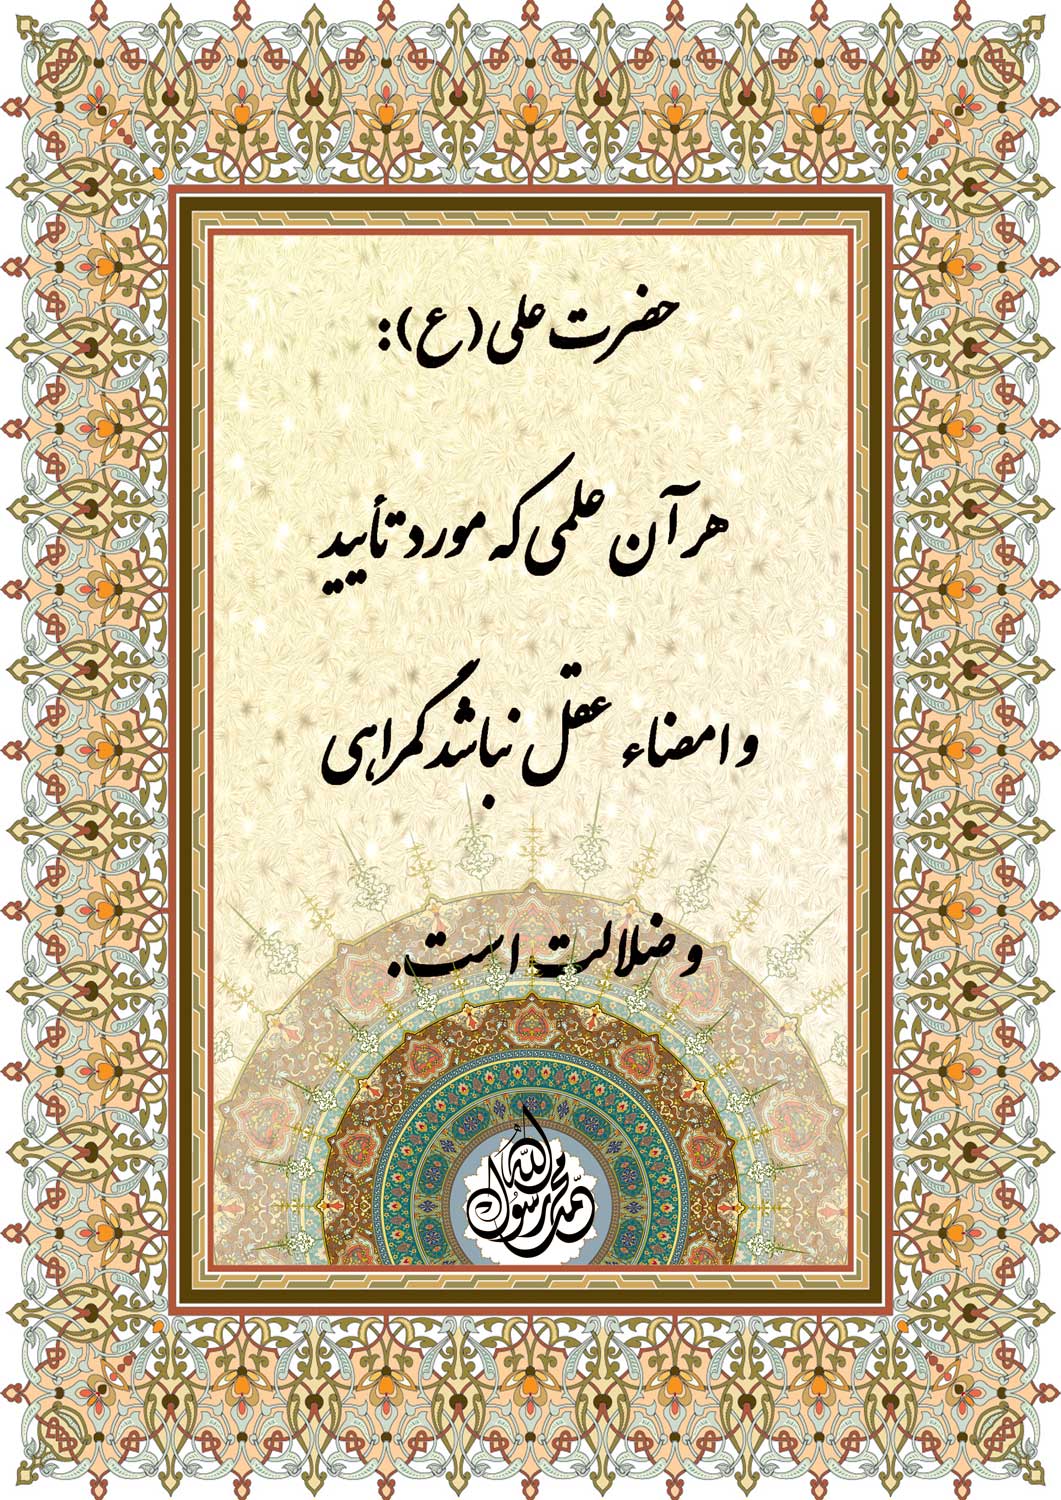 حضرت علی (ع):
هر آن علمی که مورد تأیید
و امضاء عقل نباشد گمراهی
و ضلالت است.
محمد رسول الله